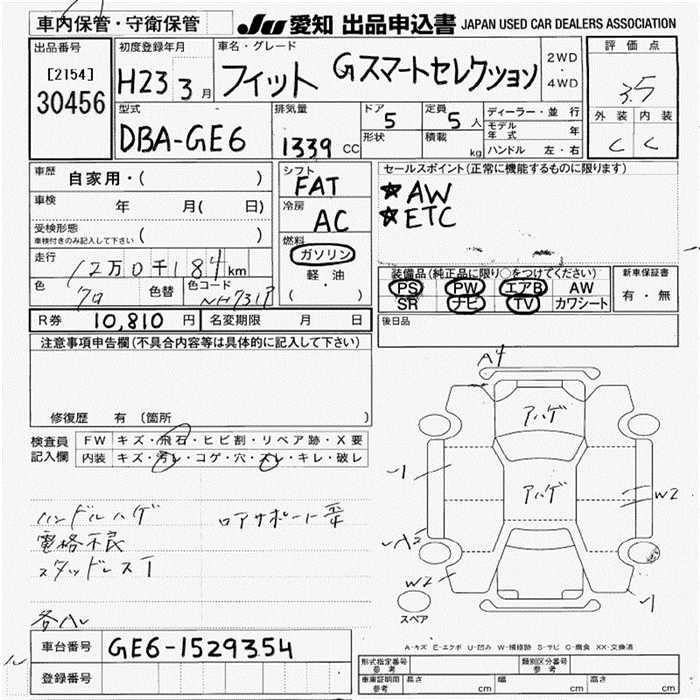 車内保管・守衛保管 JU 愛知 出品申込書 JAPAN USED CAR DEALERS ASSOCIATION
出品番号 初度登録年月 車名・グレード 評価点
[2154] H23 3月 フィット Gスマートセレクション 2WD・4WD 3.5
30456 型式 排気量 ドア 定員 ディーラー・並行 外装 内装
DBA-GE6 1339 CC 5 5人 モデル年式 年 C C
形状 積載 kg ハンドル 左・右
車歴 自家用・( ) シフト FAT セールスポイント(正常に機能するものに限ります)
車検 年 月( 日) 冷房 AC ★AW
受検形態 ( ) ★ETC
車検付きのみ記入して下さい 燃料 ガソリン
走行 12万0千184km 軽・油 装備品(純正品に限り○をつけてください) 新車保証書
色 クロ 色替 色コード NH731P ( ・ ) PS PW エアB AW 有・無
SR ナビ TV カワシート
R券 10,810円 名変期限 月 日 後日品
注意事項申告欄(不具合内容等は具体的に記入して下さい)
修復歴 有(箇所
検査員記入欄 FW キズ・飛石・ヒビ割・リペア跡・X要
内装 キズ・汚レ・コゲ・穴・スレ・キレ・破レ
ハンドルハゲ ロアサポート
電格不良
スタッドレス
A4
アハゲ
アハゲ
W2
W2
スペア
A-キズ E-エクボ U-凹み W-補修跡 S-サビ C-腐食 XX-交換済
車台番号 GE6-1529354
登録番号
形式指定番号 参考 類別区分番号 参考
車庫証明用 参考 長さ cm 幅 cm 高さ cm